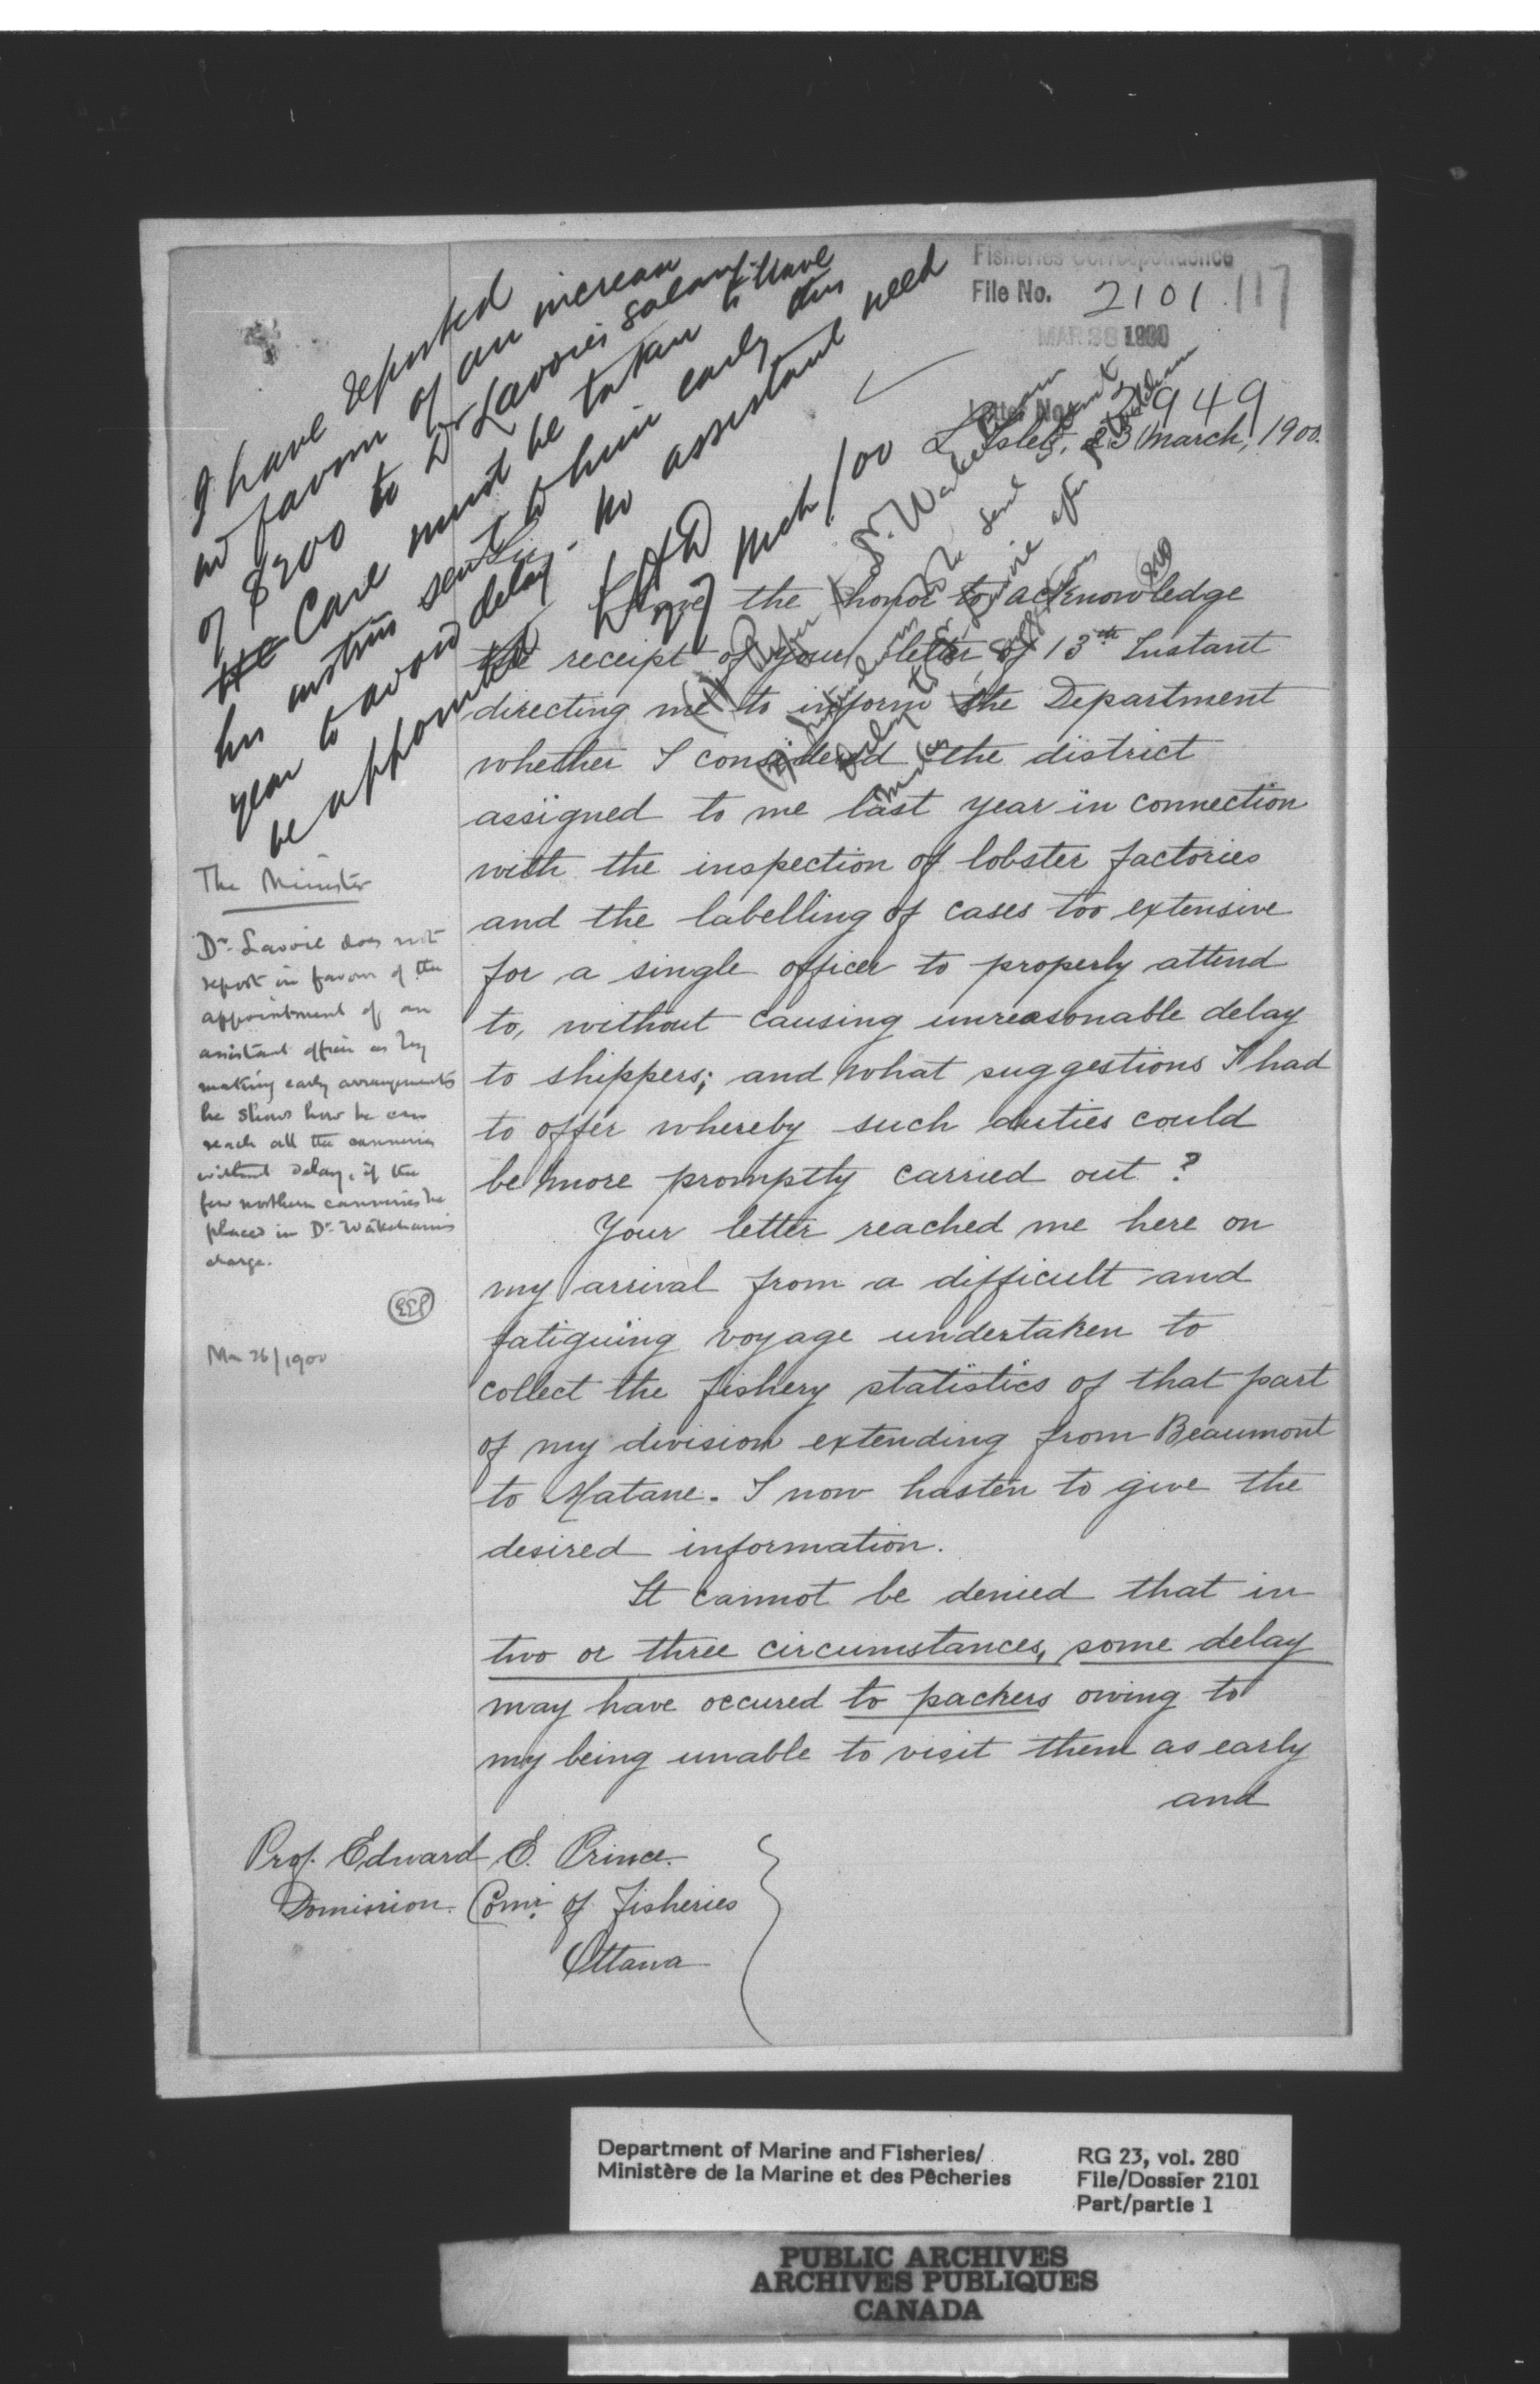 Fisheries Correspondence
File No. 2101 117
MAR 26 1900
Letter No. 2949
L'Islet, 23 March, 1900.
I have reported
in favour of an increase
of $200 to Dr Lavoie's salary
Care must be taken to have
his instrns sent to him early this
year to avoid delay. No assistant need
be appointed
LHD
27 Mch/00
Sir,
I have the honor to acknowledge
the receipt of your letter of 13th Instant
directing me to inform the Department
whether I considered the district
assigned to me last year in connection
with the inspection of lobster factories
and the labelling of cases too extensive
for a single officer to properly attend
to, without causing unreasonable delay
to shippers; and what suggestions I had
to offer whereby such duties could
be more promptly carried out?
Your letter reached me here on
my arrival from a difficult and
fatiguing voyage undertaken to
collect the fishery statistics of that part
of my division extending from Beaumont
to Matane. I now hasten to give the
desired information.
It cannot be denied that in
two or three circumstances, some delay
may have occured to packers owing to
my being unable to visit them as early
and
The Minister
Dr. Lavoie does not
report in favour of the
appointment of an
assistant officer as by
making early arrangements
he shows how he can
reach all the canneries
without delay, if the
few northern canneries be
placed in Dr. Wakeham's
charge.
EEP
Mar 26/1900
Prof. Edward E. Prince.
Dominion Comr. of Fisheries
Ottawa
Department of Marine and Fisheries/
Ministère de la Marine et des Pêcheries
RG 23, vol. 280
File/Dossier 2101
Part/partie 1
PUBLIC ARCHIVES
ARCHIVES PUBLIQUES
CANADA